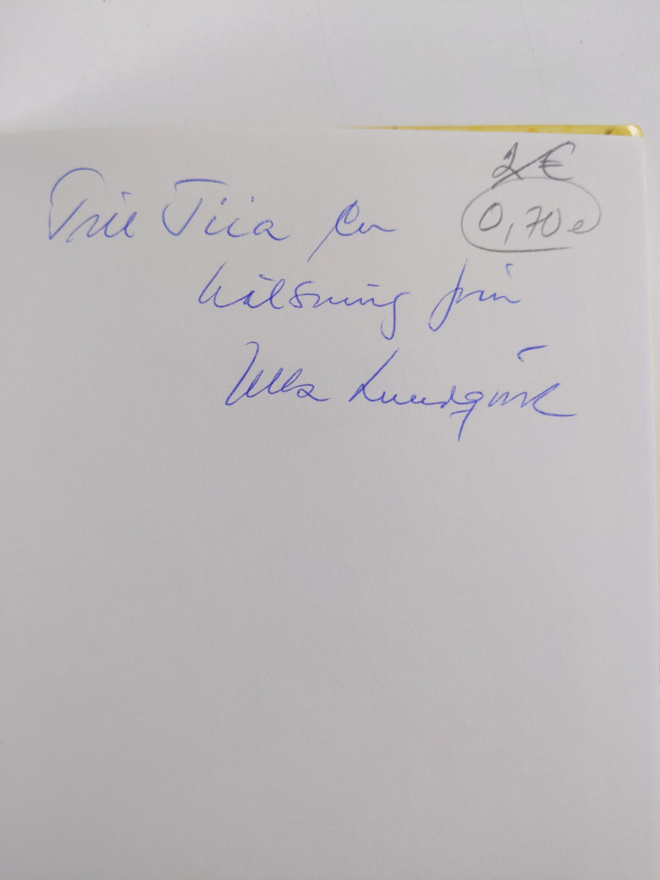 2€
0,70 e
Till Tiia en
hälsning från
Ulla Lundqvist